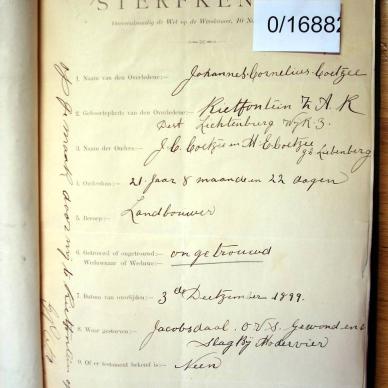 STERFKEN
Overeenkomstig de Wet op de Weeskamer, 10 No
0/16882
1. Naam van den Overledene:— Johannes Cornelius Coetzee
2. Geboorteplaats van den Overledene:— Rietfontein Z.A.R
Dist Lichtenburg Wyk 3.
3. Naam der Ouders:— J. C. Coetzee en M. E. Coetzee
gb Liebenberg
4. Ouderdom:— 21 Jaar 8 maande en 22 dagen
5. Beroep:— Landbouwer
6. Getrouwd of ongetrouwd:— ongetrouwd
Weduwnaar of Weduwe:—
7. Datum van overlijden:— 3de Deetzember 1899.
8. Waar gestorven:— Jacobsdaal O.V.S. Gewond in
Slag by Modervier
9. Of er testament bekend is:— Neen